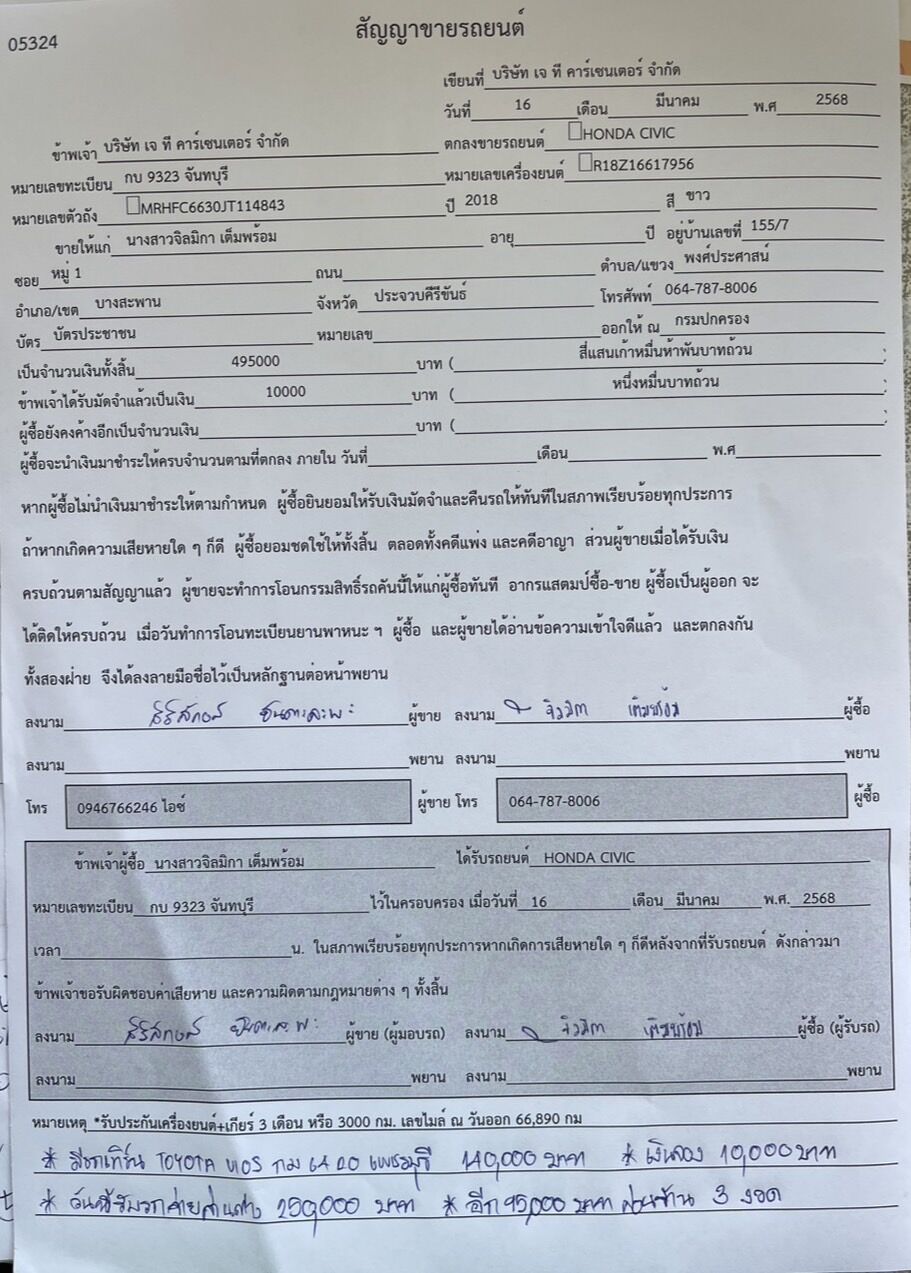 05324
สัญญาขายรถยนต์
เขียนที่ บริษัท เจ ที คาร์เซนเตอร์ จำกัด
วันที่ 16 เดือน มีนาคม พ.ศ 2568
ข้าพเจ้า บริษัท เจ ที คาร์เซนเตอร์ จำกัด ตกลงขายรถยนต์ HONDA CIVIC
หมายเลขทะเบียน กบ 9323 จันทบุรี หมายเลขเครื่องยนต์ R18Z16617956
หมายเลขตัวถัง MRHFC6630JT114843 ปี 2018 สี ขาว
ขายให้แก่ นางสาวจิลมิกา เต็มพร้อม อายุ ปี อยู่บ้านเลขที่ 155/7
ซอย หมู่ 1 ถนน ตำบล/แขวง พงศ์ประศาสน์
อำเภอ/เขต บางสะพาน จังหวัด ประจวบคีรีขันธ์ โทรศัพท์ 064-787-8006
บัตร บัตรประชาชน หมายเลข ออกให้ ณ กรมปกครอง
เป็นจำนวนเงินทั้งสิ้น 495000 บาท ( สี่แสนเก้าหมื่นห้าพันบาทถ้วน )
ข้าพเจ้าได้รับมัดจำแล้วเป็นเงิน 10000 บาท ( หนึ่งหมื่นบาทถ้วน )
ผู้ซื้อยังคงค้างอีกเป็นจำนวนเงิน บาท ( )
ผู้ซื้อจะนำเงินมาชำระให้ครบจำนวนตามที่ตกลง ภายใน วันที่ เดือน พ.ศ
หากผู้ซื้อไม่นำเงินมาชำระให้ตามกำหนด ผู้ซื้อยินยอมให้รับเงินมัดจำและคืนรถให้ทันทีในสภาพเรียบร้อยทุกประการ
ถ้าหากเกิดความเสียหายใด ๆ ก็ดี ผู้ซื้อยอมชดใช้ให้ทั้งสิ้น ตลอดทั้งคดีแพ่ง และคดีอาญา ส่วนผู้ขายเมื่อได้รับเงิน
ครบถ้วนตามสัญญาแล้ว ผู้ขายจะทำการโอนกรรมสิทธิ์รถคันนี้ให้แก่ผู้ซื้อทันที อากรแสตมป์ซื้อ-ขาย ผู้ซื้อเป็นผู้ออก จะ
ได้ติดให้ครบถ้วน เมื่อวันทำการโอนทะเบียนยานพาหนะ ฯ ผู้ซื้อ และผู้ขายได้อ่านข้อความเข้าใจดีแล้ว และตกลงกัน
ทั้งสองฝ่าย จึงได้ลงลายมือชื่อไว้เป็นหลักฐานต่อหน้าพยาน
ลงนาม ผู้ขาย ลงนาม เต็มพร้อม ผู้ซื้อ
ลงนาม พยาน ลงนาม พยาน
โทร 0946766246 ไอซ์ ผู้ขาย โทร 064-787-8006 ผู้ซื้อ
ข้าพเจ้าผู้ซื้อ นางสาวจิลมิกา เต็มพร้อม ได้รับรถยนต์ HONDA CIVIC
หมายเลขทะเบียน กบ 9323 จันทบุรี ไว้ในครอบครอง เมื่อวันที่ 16 เดือน มีนาคม พ.ศ. 2568
เวลา น. ในสภาพเรียบร้อยทุกประการหากเกิดการเสียหายใด ๆ ก็ดีหลังจากที่รับรถยนต์ ดังกล่าวมา
ข้าพเจ้าขอรับผิดชอบค่าเสียหาย และความผิดตามกฎหมายต่าง ๆ ทั้งสิ้น
ลงนาม ผู้ขาย (ผู้มอบรถ) ลงนาม เต็มพร้อม ผู้ซื้อ (ผู้รับรถ)
ลงนาม พยาน ลงนาม พยาน
หมายเหตุ *รับประกันเครื่องยนต์+เกียร์ 3 เดือน หรือ 3000 กม. เลขไมล์ ณ วันออก 66,890 กม
* มีรถเทิร์น TOYOTA VIOS เพชรบุรี 140,000 บาท * เงินจอง 10,000 บาท
* วันที่รับรถจ่ายส่วนต่าง 250,000 บาท * อีก 95,000 บาท ผ่อนร้าน 3 งวด